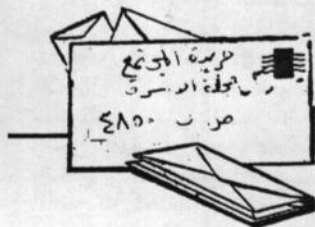 جريدة المجتمع
مجلة الاسرة
ص ب ٤٨٥٠